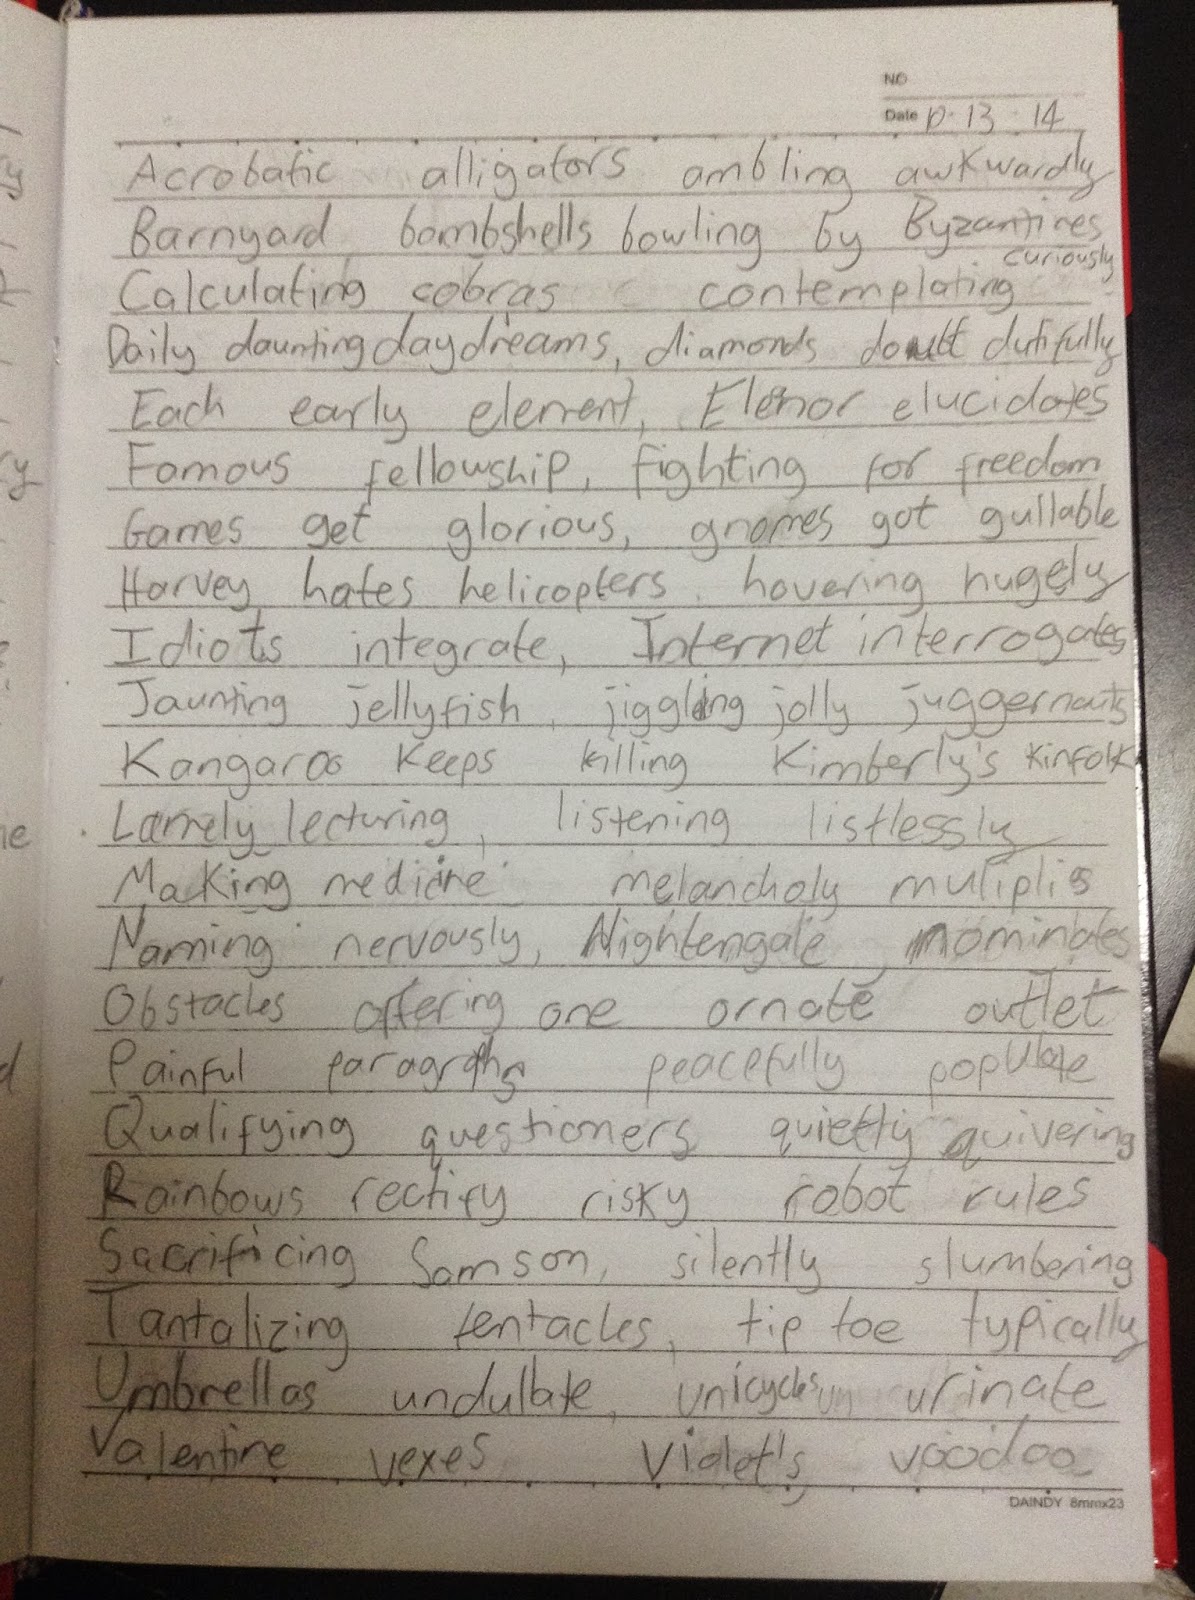 NO
Date 10·13·14
Acrobatic alligators ambling awkwardly
Barnyard bombshells bowling by Byzantines
curiously
Calculating cobras contemplating
Daily daunting daydreams, diamonds doubt dutifully
Each early element, Elenor elucidates
Famous fellowship, fighting for freedom
Games get glorious, gnomes got gullable
Harvey hates helicopters hovering hugely
Idiots integrate, Internet interrogates
Jaunting jellyfish, jiggling jolly juggernauts
Kangaroo keeps killing Kimberly's kinfolk
Lamely lecturing, listening listlessly
Making medicine melancholy muliplis
Naming nervously, Nightengale nominates
Obstacles offering one ornate outlet
Painful paragraphs peacefully populate
Qualifying questioners quietly quivering
Rainbows rectify risky robot rules
Sacrificing Samson, silently slumbering
Tantalizing tentacles, tip toe typically
Umbrellas undullate, unicycles urinate
Valentine vexes Violet's voodoo
DAINDY 8mmx23